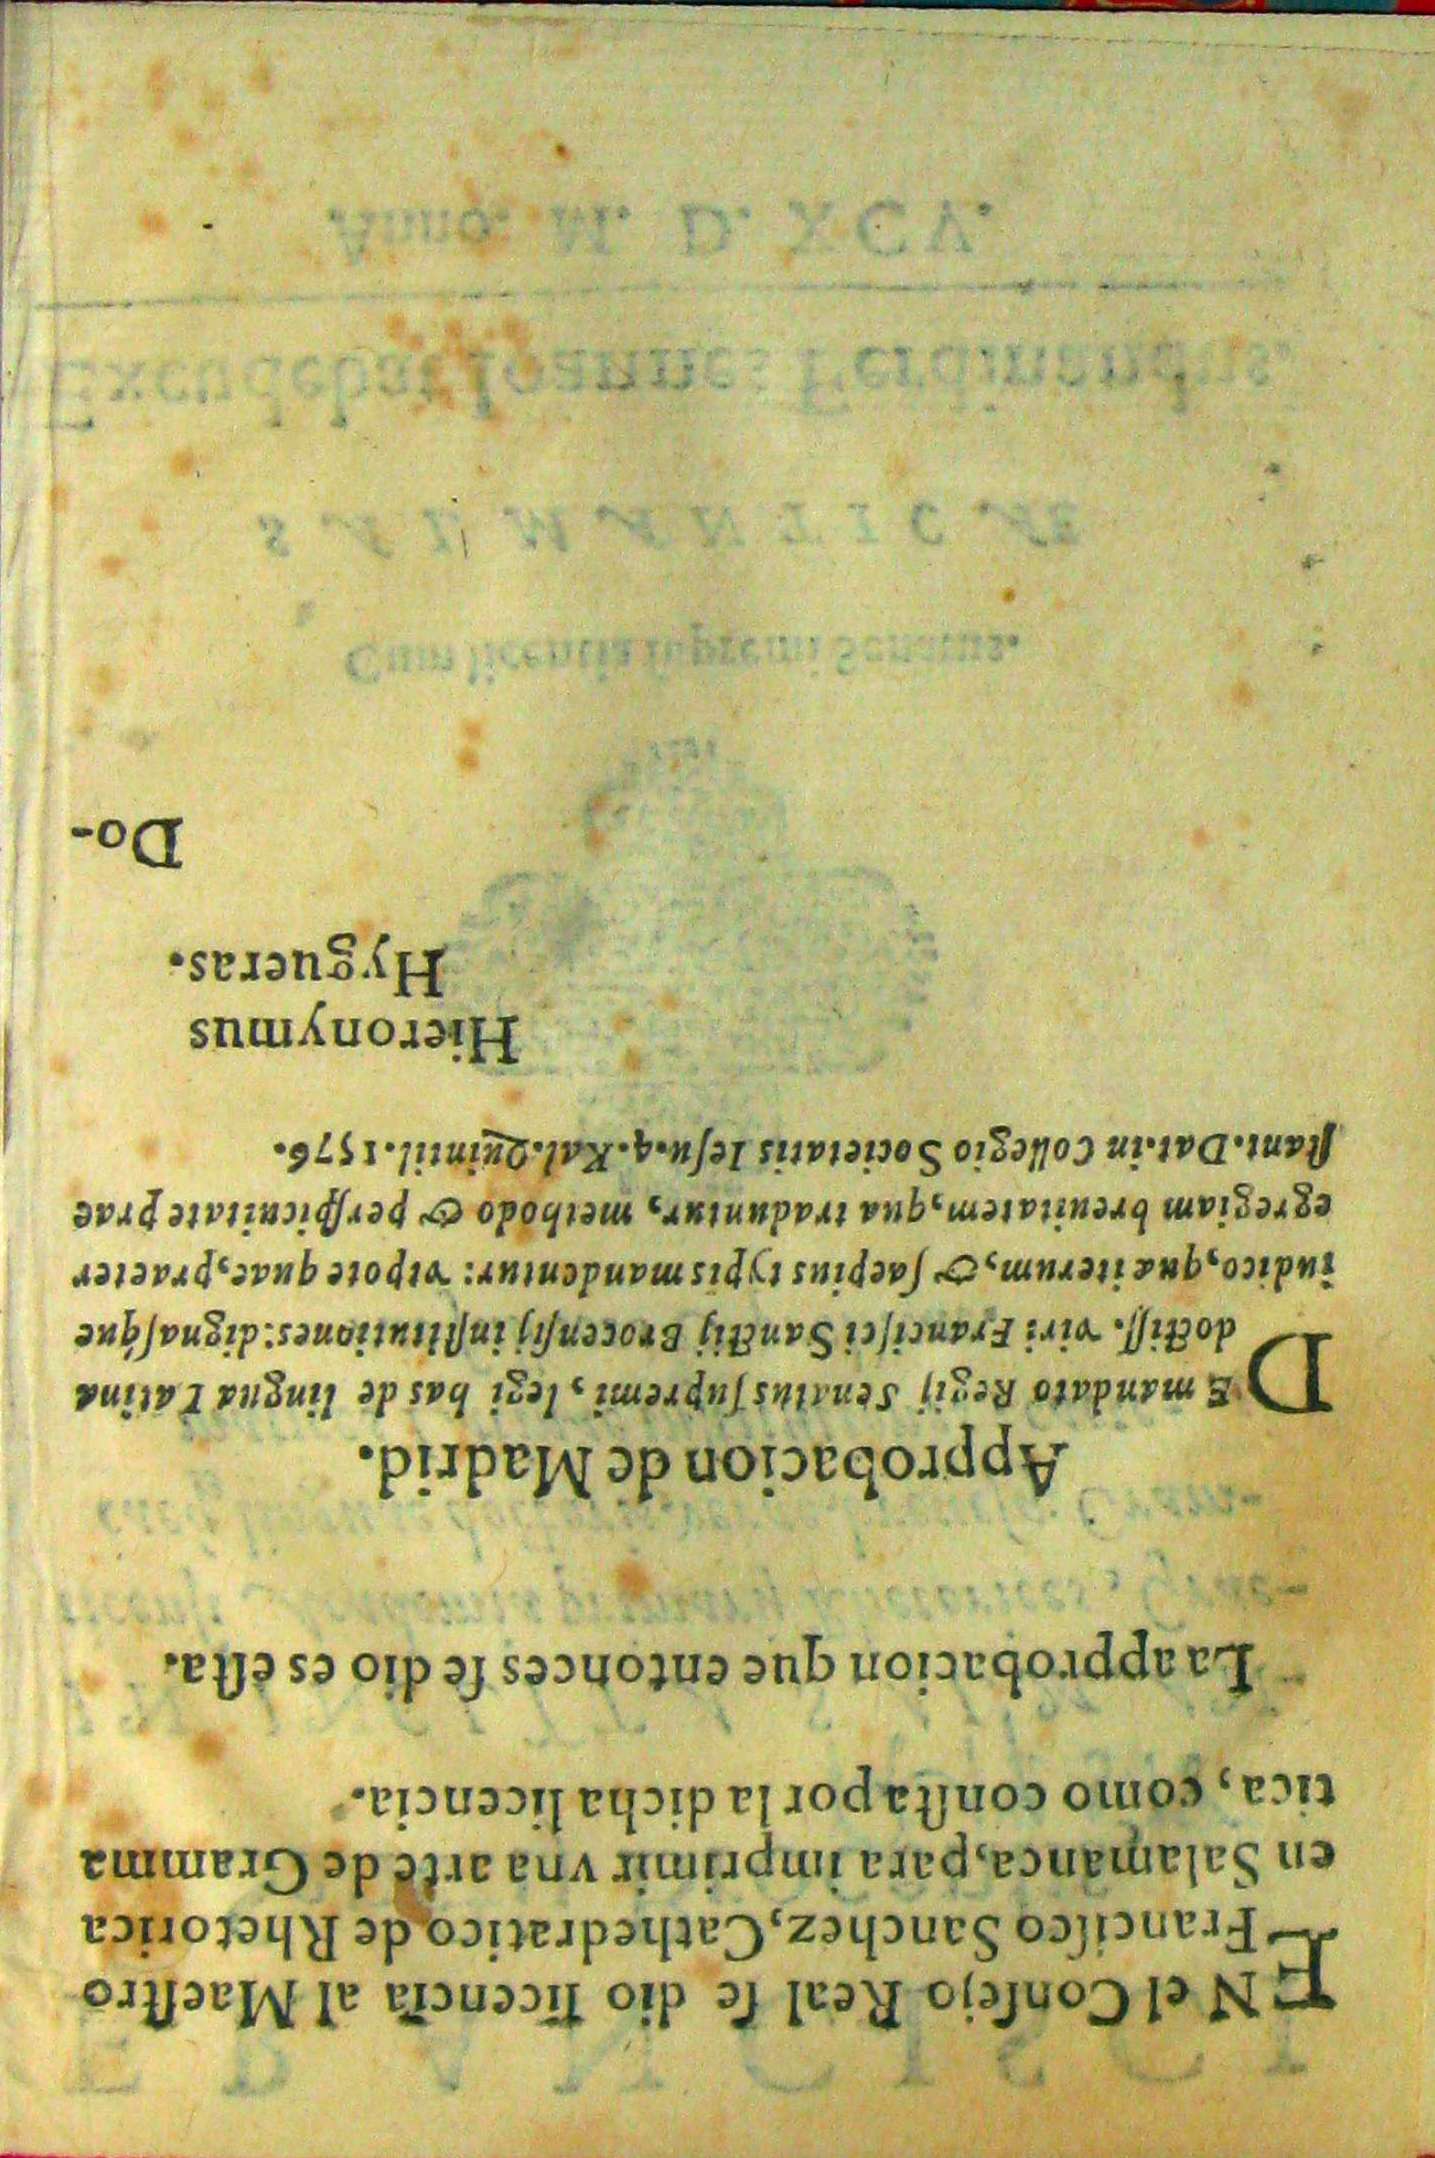 EN el Conſejo Real ſe dio licencia al Maeſtro
Franciſco Sanchez, Cathedratico de Rhetorica
en Salamanca, para imprimir vna arte de Gramma
tica, como conſta por la dicha licencia.
La approbacion que entonces ſe dio es eſta.
Approbacion de Madrid.
DE mandato Regij Senatus ſupremi, legi has de lingua Latina
doctiſſ. viri Franciſci Sanctij Brocenſis inſtitutiones: dignaſque
iudico, quæ iterum, & ſaepius typis mandentur: vtpote quae, praeter
egregiam breuitatem, qua traduntur, methodo & perſpicuitate prae
ſtant. Dat. in Collegio Societatis Ieſu. 4. Kal. Quintil. 1576.
Hieronymus
Hygueras.
Do-